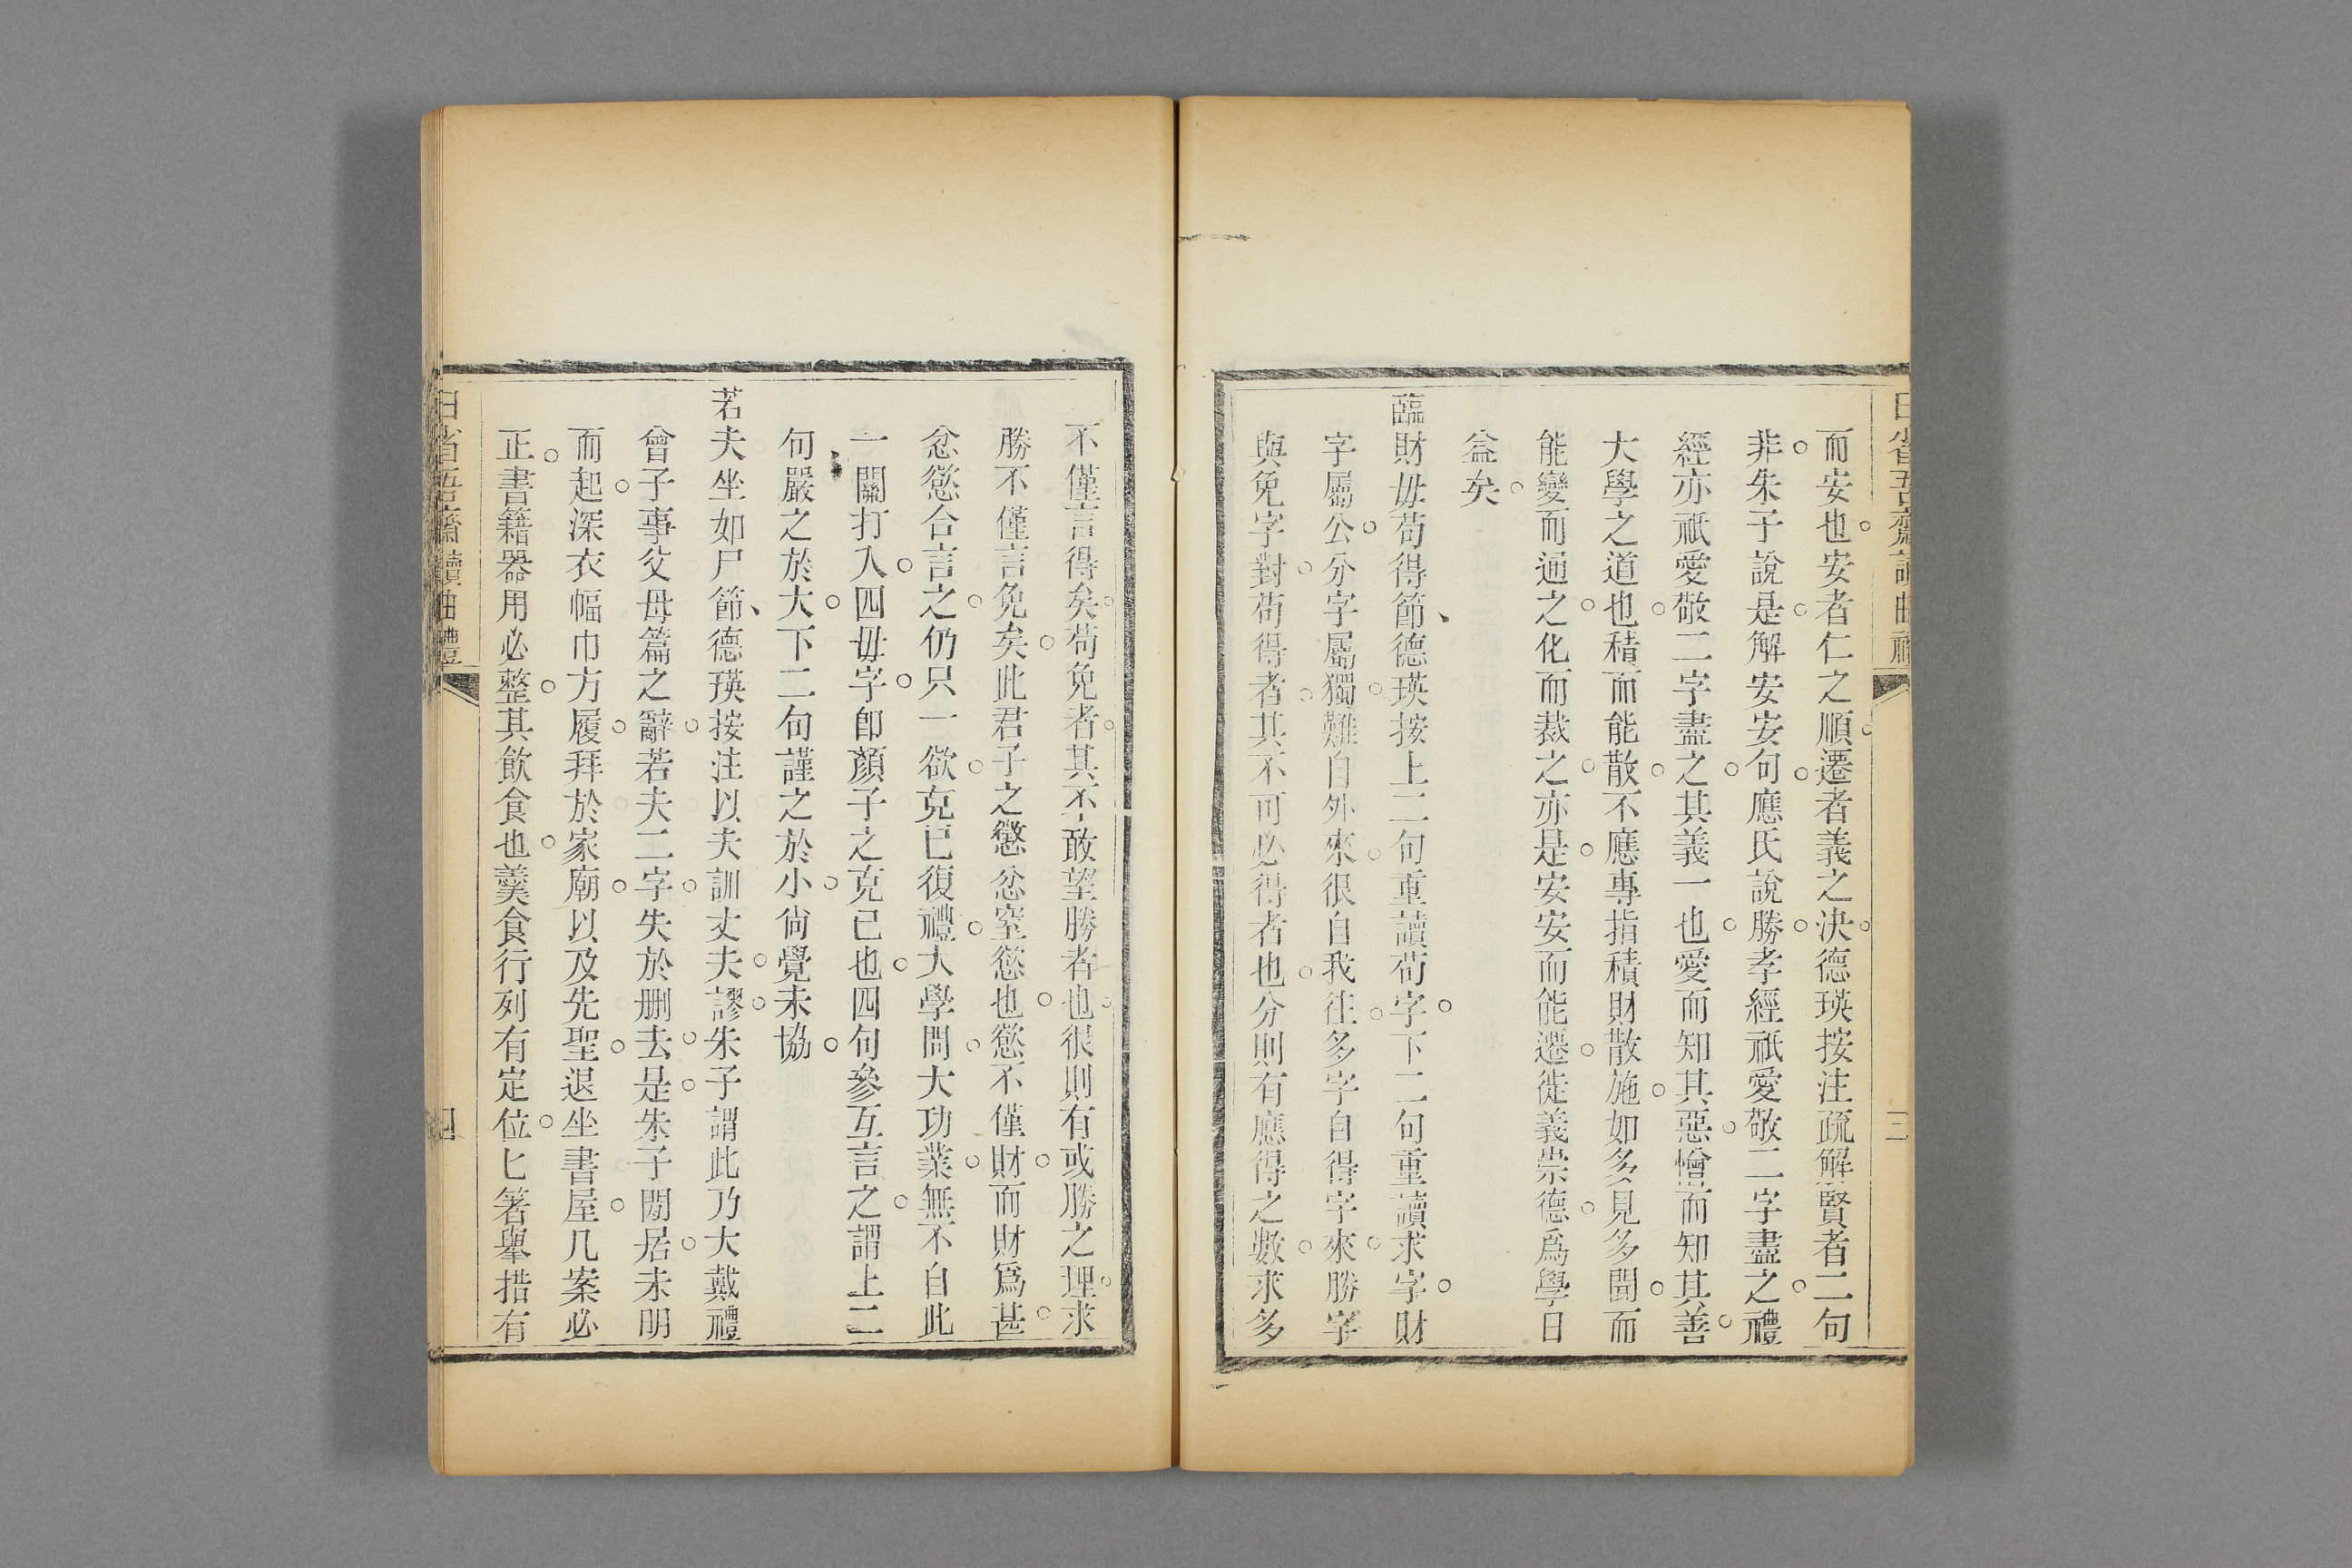 而安也安者仁之順遷者義之決德瑛按注疏解賢者二句
非朱子說是解安安句應氏說勝孝經祇愛敬二字盡之禮
經亦祇愛敬二字盡之其義一也愛而知其惡憎而知其善
大學之道也積而能散不應專指積財散施如多見多聞而
能變而通之化而裁之亦是安安而能遷徙義崇德爲學日
益矣
臨財毋苟得節德瑛按上二句重讀苟字下二句重讀求字財
字屬公分字屬獨難自外來很自我往多字自得字來勝字
與免字對苟得者其不可必得者也分則有應得之數求多
不僅言得矣苟免者其不敢望勝者也很則有或勝之理求
勝不僅言免矣此君子之懲忿窒慾也慾不僅財而財爲甚
忿慾合言之仍只一欲克己復禮大學問大功業無不自此
一關打入四毋字卽顏子之克己也四句參互言之謂上二
句嚴之於大下二句謹之於小尙覺未協
若夫坐如尸節德瑛按注以夫訓丈夫謬朱子謂此乃大戴禮
曾子事父母篇之辭若夫二字失於刪去是朱子閒居未明
而起深衣幅巾方履拜於家廟以及先聖退坐書屋几案必
正書籍器用必整其飮食也羹食行列有定位匕箸舉措有
日省吾齋讀曲禮
四